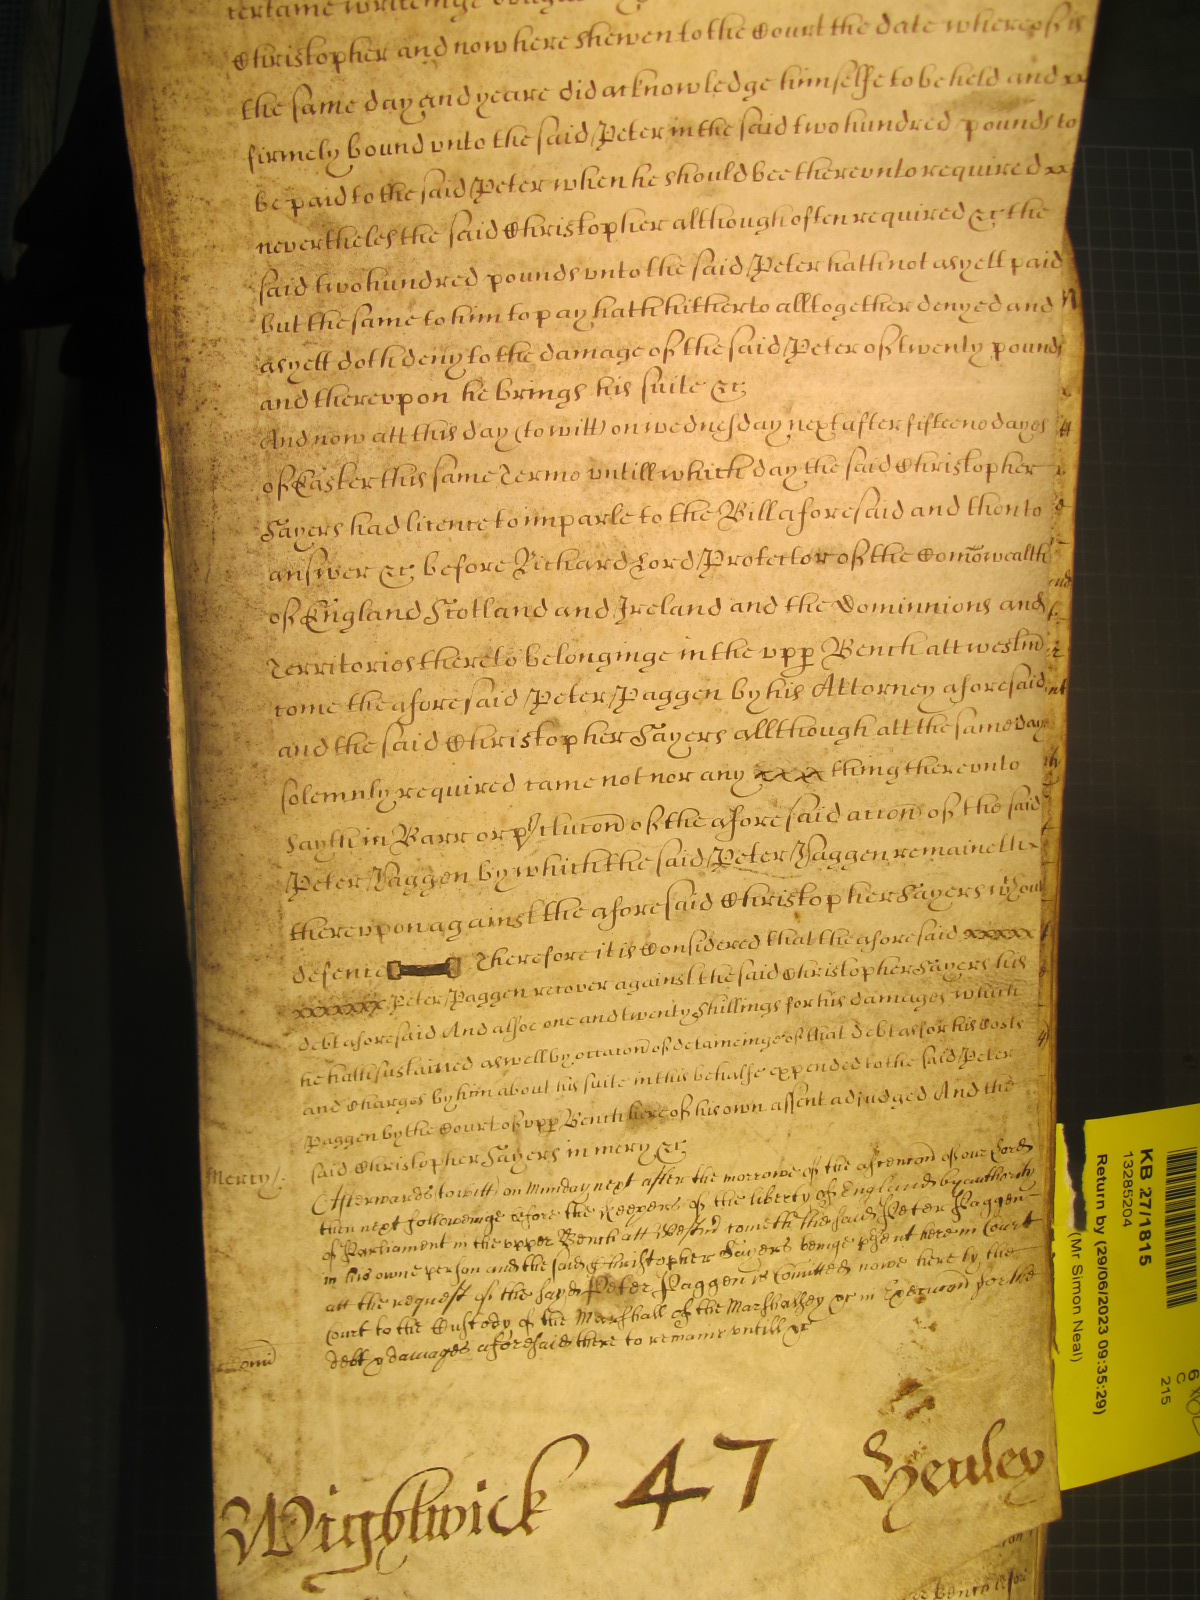 certaine writeinge
Christopher and now here shewen to the Court the date whereof is
the same day and yeare did acknowledge himselfe to be held and xx
firmely bound vnto the said Peter in the said two hundred pounds to
be paid to the said Peter when he should bee therevnto required xx
neverthelesse the said Christopher although often required &c the
said two hundred pounds vnto the said Peter hath not as yett paid
but the same to him to pay hath hitherto alltogether denyed and
as yett doth deny to the damage of the said Peter of twenty pounds
and therevpon he brings his suite &c
And now att this day (to witt) on wednesday next after fifteene dayes
of Easter this same Terme vntill which day the said Christopher
Sayers had licence to imparle to the Bill aforesaid and then to
answer &c before Richard Lord Protector of the Comōwealth
of England Scotland and Ireland and the Dominnions and
Territories thereto belonginge in the vpp Bench att westm̄
come the aforesaid Peter Paggen by his Attorney aforesaid
and the said Christopher Sayers allthough att the same day
solemnly required came not nor any xxxx thing therevnto
sayth in Barr or p'clucon̄ of the aforesaid accon̄ of the said
Peter Paggen by which the said Peter Paggen remaineth
therevpon against the aforesaid Christopher Sayers wthout
defence Therefore it is Considered that the aforesaid xxxxx
xxxxxxx Peter Paggen recover against the said Christopher Sayers his
debt aforesaid And alsoe one and twenty shillings for his damages which
he hath sustained aswell by occacon̄ of detaineinge of that debt as for his Costs
and Charges by him about his suite in this behalfe expended to the said Peter
Paggen by the Court of vpp Bench here of his own assent adjudged And the
Mercy/. said Christopher Sayers in mercy &c
(Afterwards to witt) on Munday next after the morrowe of the ascencon̄ of our Lord
then next followeinge before the Keepers of the liberty of England by authority
of Parliament in the vpper Bench att Westm̄ cometh the said Peter Paggen
in his owne person and the said Christopher Sayers beinge p'sent here in Court
att the request of the sayd Peter Paggen is Comitted nowe here by the
Court to the Custody of the Marshall of the Marshalsey &c in Execucon̄ for the
debt & damages aforesaid there to remaine vntill &c
Wightwick 47 Henley
KB 27/1815
13285204
Return by (29/06/2023 09:35:29)
(Mr Simon Neal)
6
C
215